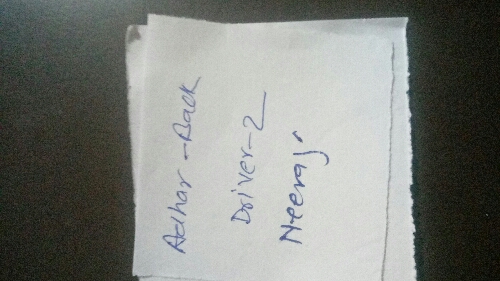 Adhar - Back
Driver-2
Neeraj